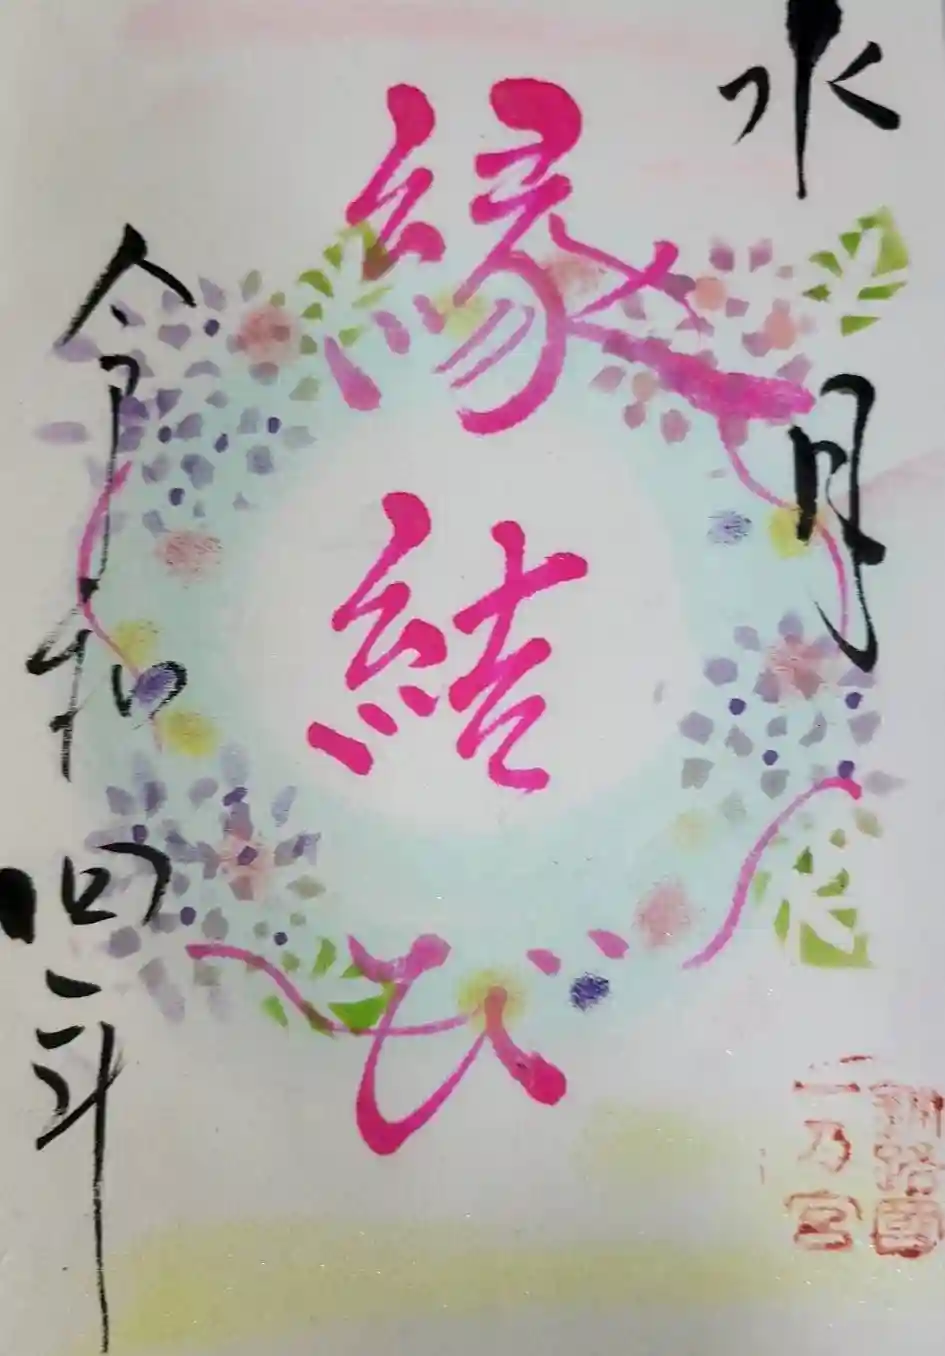 水月
釧路國
一乃宮
縁結び
令和四年